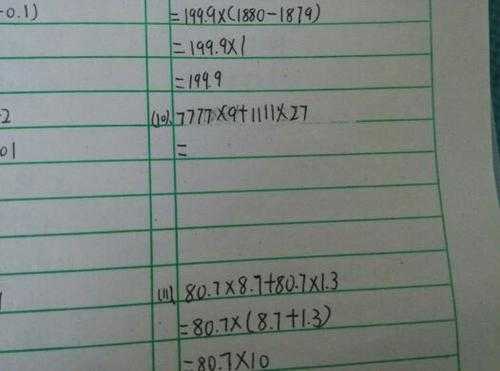 -0.1)
=199.9×(1880-1879)
=199.9×1
=199.9
(10). 7777×9+1111×27
=
(11). 80.7×8.7+80.7×1.3
=80.7×(8.7+1.3)
=80.7×10